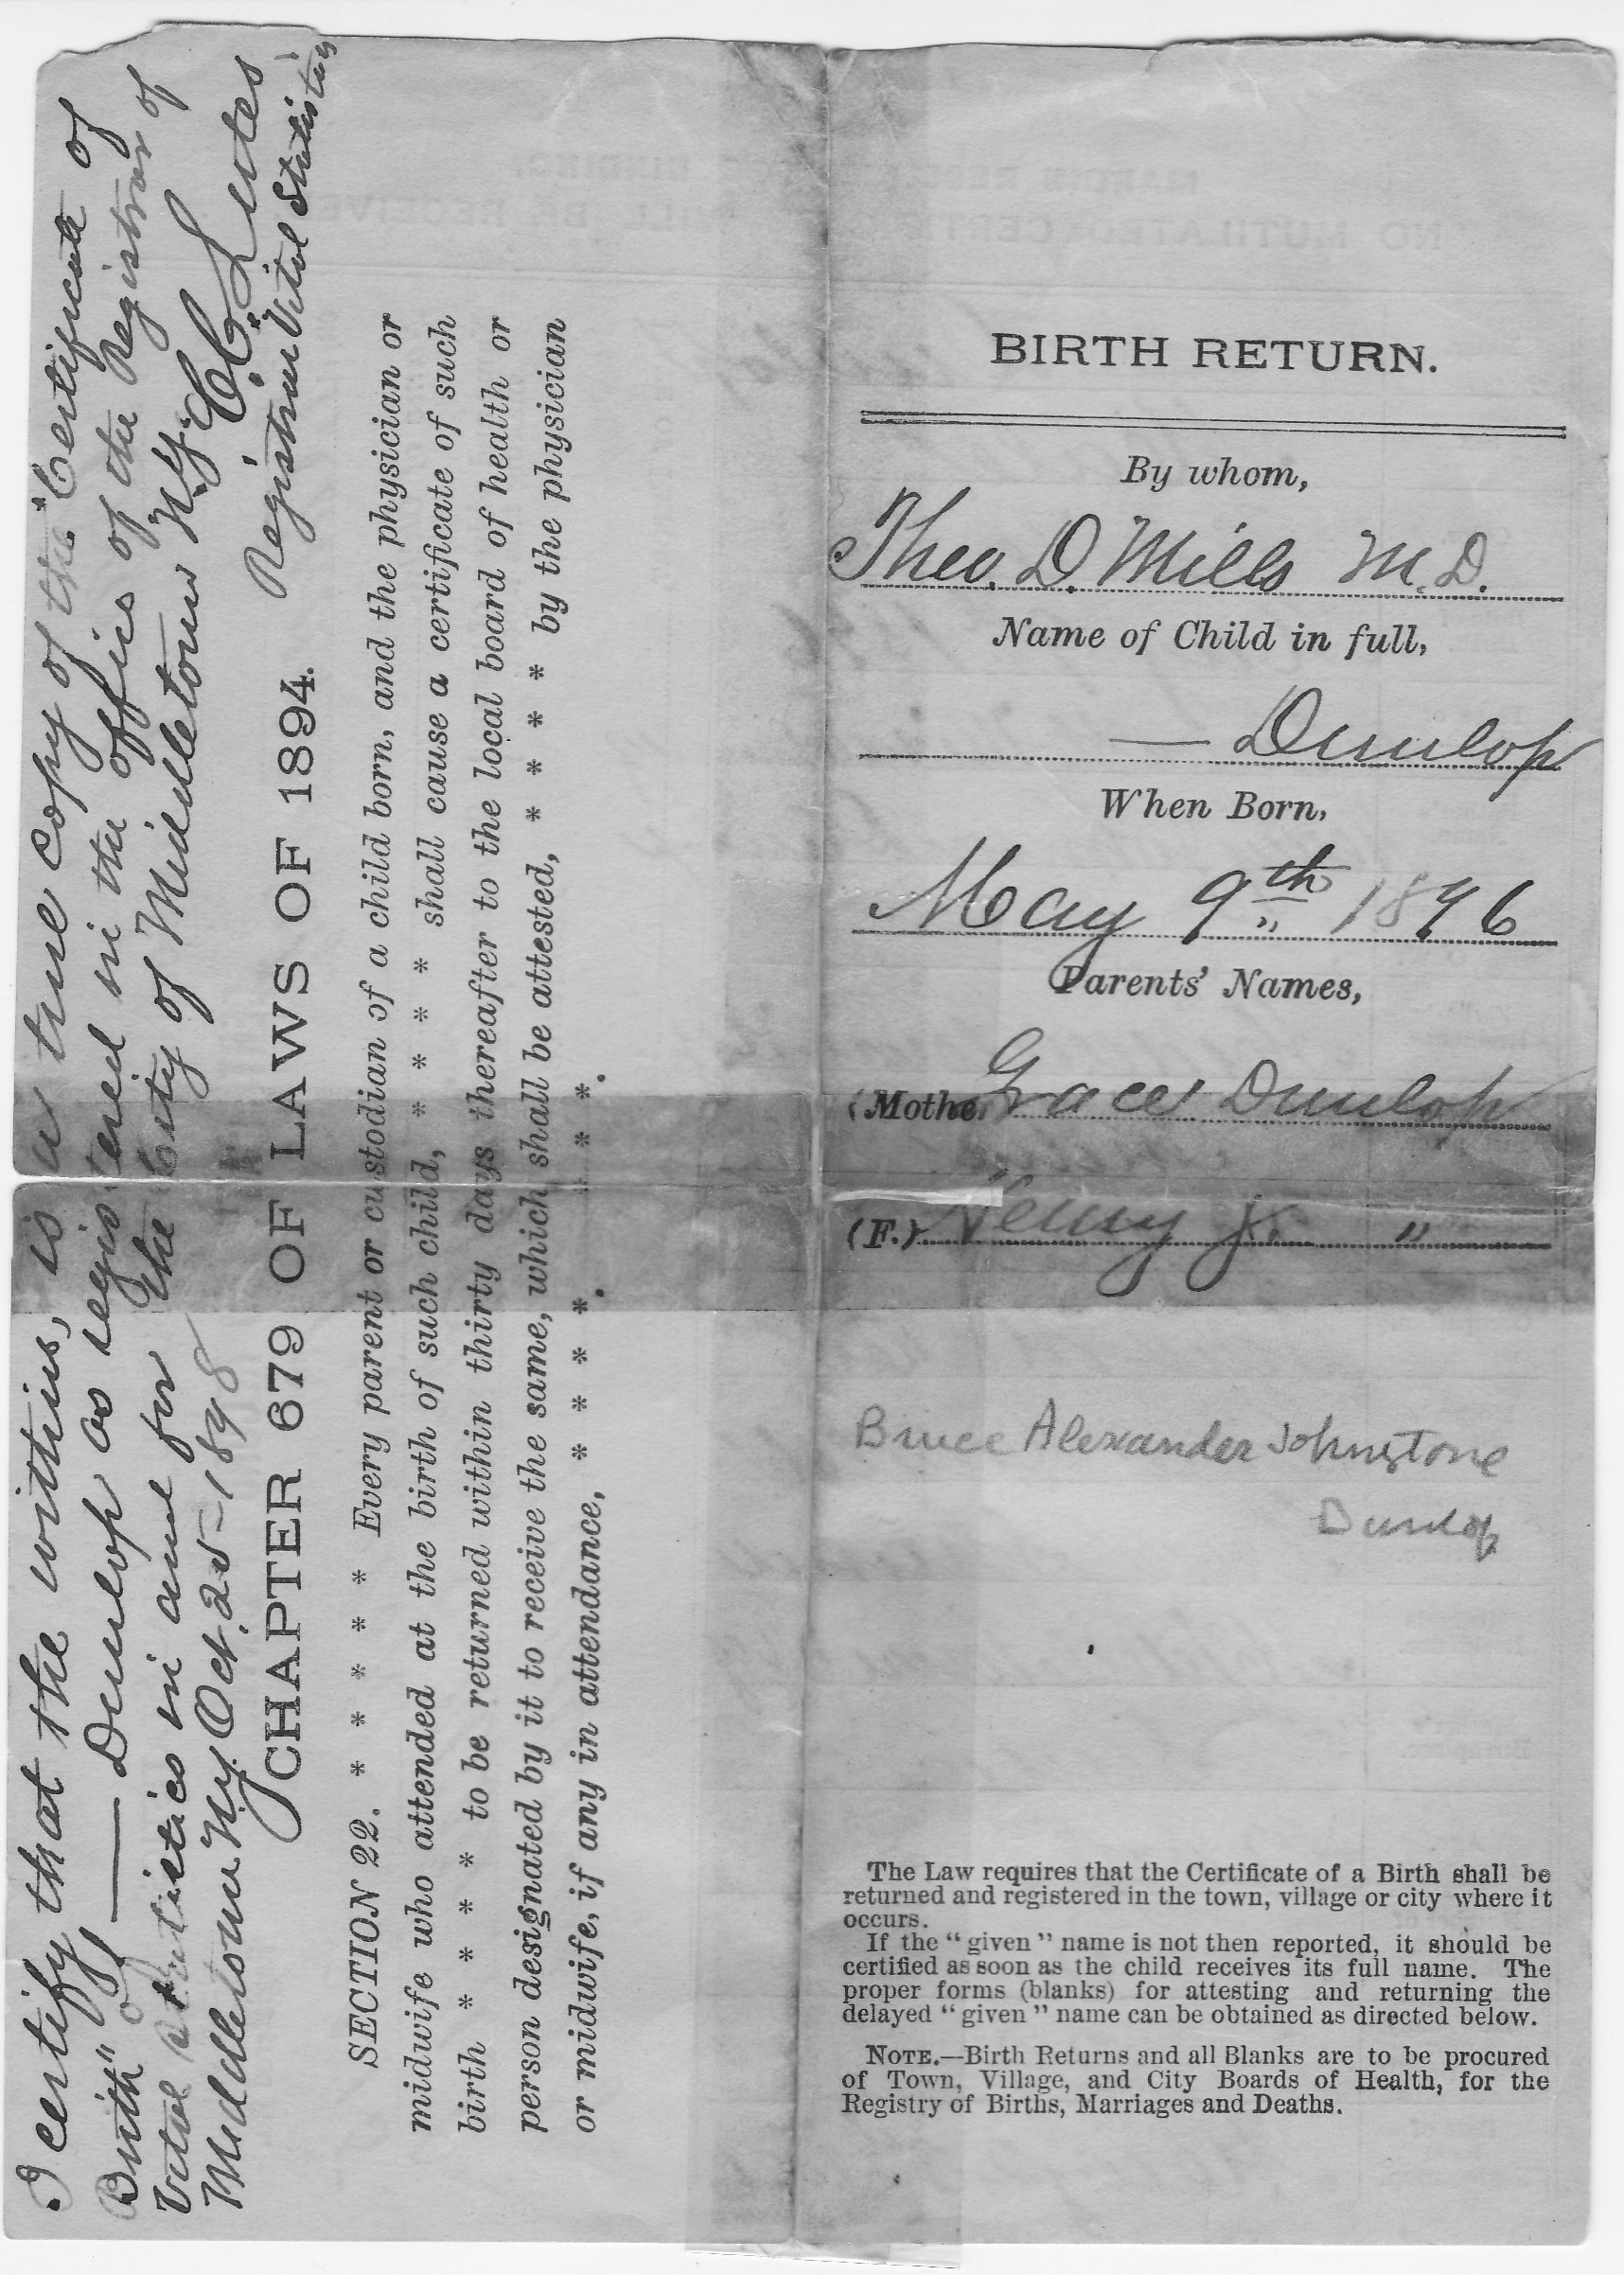 I certify that the within, is a true copy of the "Certificate of
Birth" of — Dunlop as registered in the office of the Registrar of
Vital Statistics in and for the City of Middletown N.Y.
Middletown N.Y. Oct. 25-1898 C. C. Lutes
Registrar Vital Statistics
CHAPTER 679 OF LAWS OF 1894.
SECTION 22. * * * * * Every parent or custodian of a child born, and the physician or
midwife who attended at the birth of such child, * * * * shall cause a certificate of such
birth * * * * to be returned within thirty days thereafter to the local board of health or
person designated by it to receive the same, which shall be attested, * * * * by the physician
or midwife, if any in attendance, * * * * * *.
BIRTH RETURN.
By whom,
Theo. D. Mills M.D.
Name of Child in full,
— Dunlop
When Born,
May 9th 1896
Parents' Names,
(Mothe Grace Dunlop
(F.) Henry J. "
Bruce Alexander Johnstone
Dunlop
The Law requires that the Certificate of a Birth shall be
returned and registered in the town, village or city where it
occurs.
If the "given" name is not then reported, it should be
certified as soon as the child receives its full name. The
proper forms (blanks) for attesting and returning the
delayed "given" name can be obtained as directed below.
NOTE.—Birth Returns and all Blanks are to be procured
of Town, Village, and City Boards of Health, for the
Registry of Births, Marriages and Deaths.